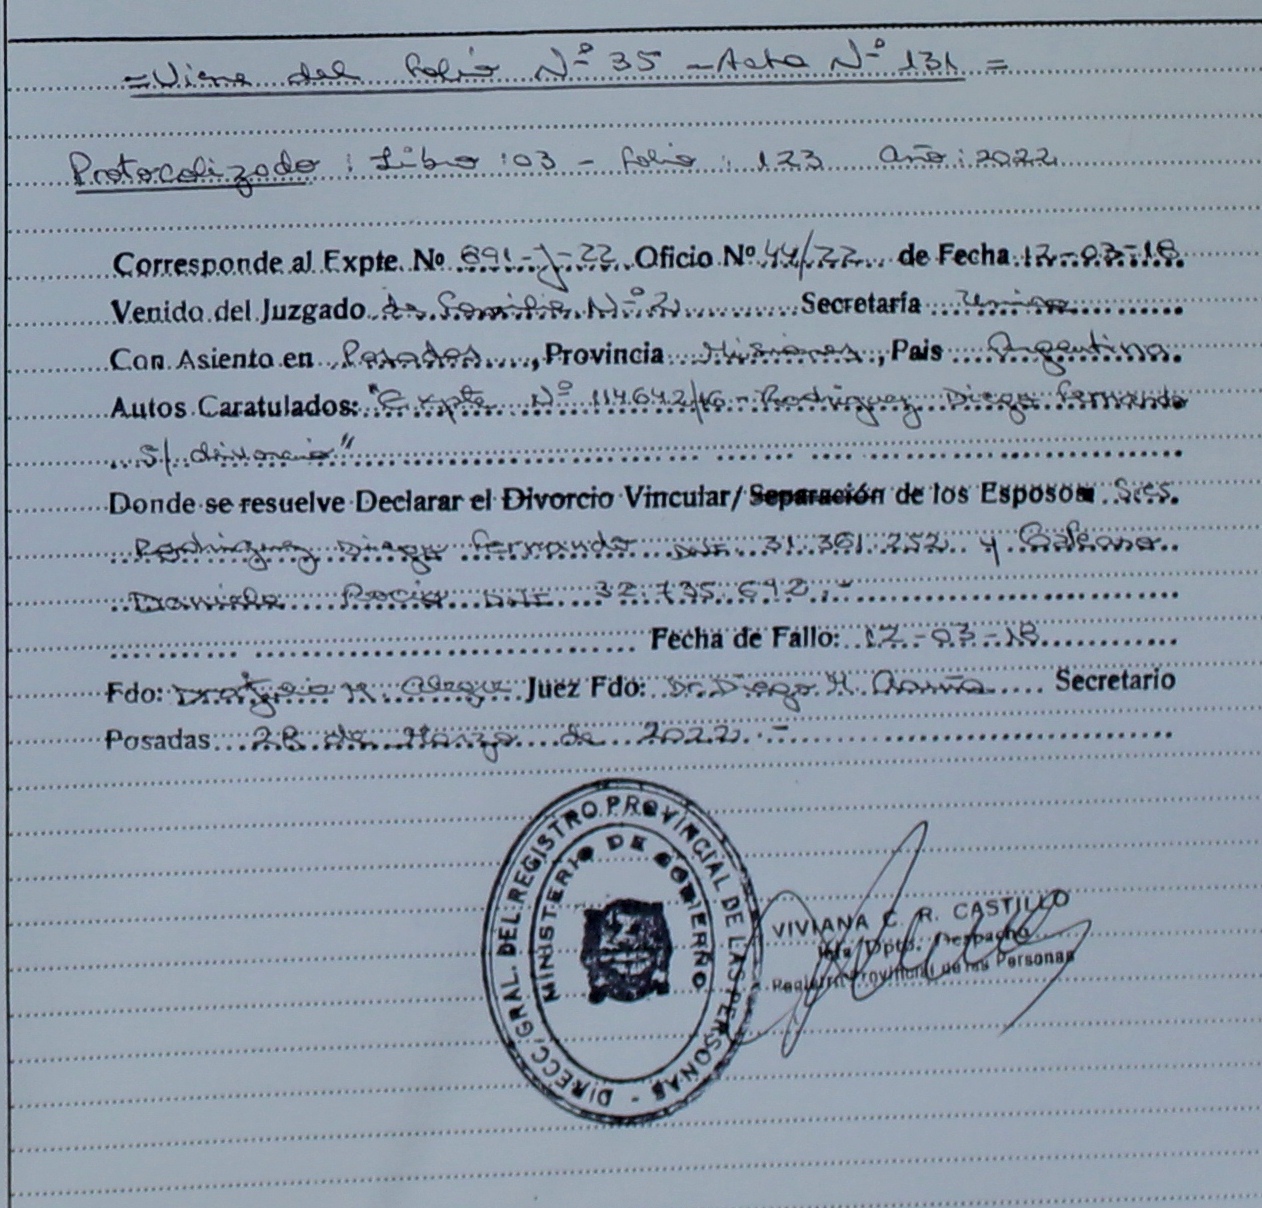 =Viene del folio Nº 35 - Acta Nº 131 =
Protocolizado : Libro : 03 - folio : 123 Año : 2022
Corresponde al Expte. Nº 891-J-22 Oficio Nº 44/22 de Fecha 12-03-18
Venido del Juzgado de Familia Nº 2 Secretaría Única
Con Asiento en Posadas, Provincia Misiones, Pais Argentina
Autos Caratulados: "Expte Nº 114642/16 - Rodriguez Diego Fernando
S/ divorcio"
Donde se resuelve Declarar el Divorcio Vincular/Separación de los Esposos Sres.
Rodriguez Diego Fernando DNI 31.361.252 y Galeano
Daniela Rocio DNI 32.735.692.-
Fecha de Fallo: 12-03-18
Fdo: Juez Fdo: Dr. Diego M. Secretario
Posadas 28 de Marzo de 2022.-
DIRECC. GRAL. DEL REGISTRO PROVINCIAL DE LAS PERSONAS -
MINISTERIO DE GOBIERNO
VIVIANA C. R. CASTILLO
Dpto. Despacho
Registro Provincial de las Personas